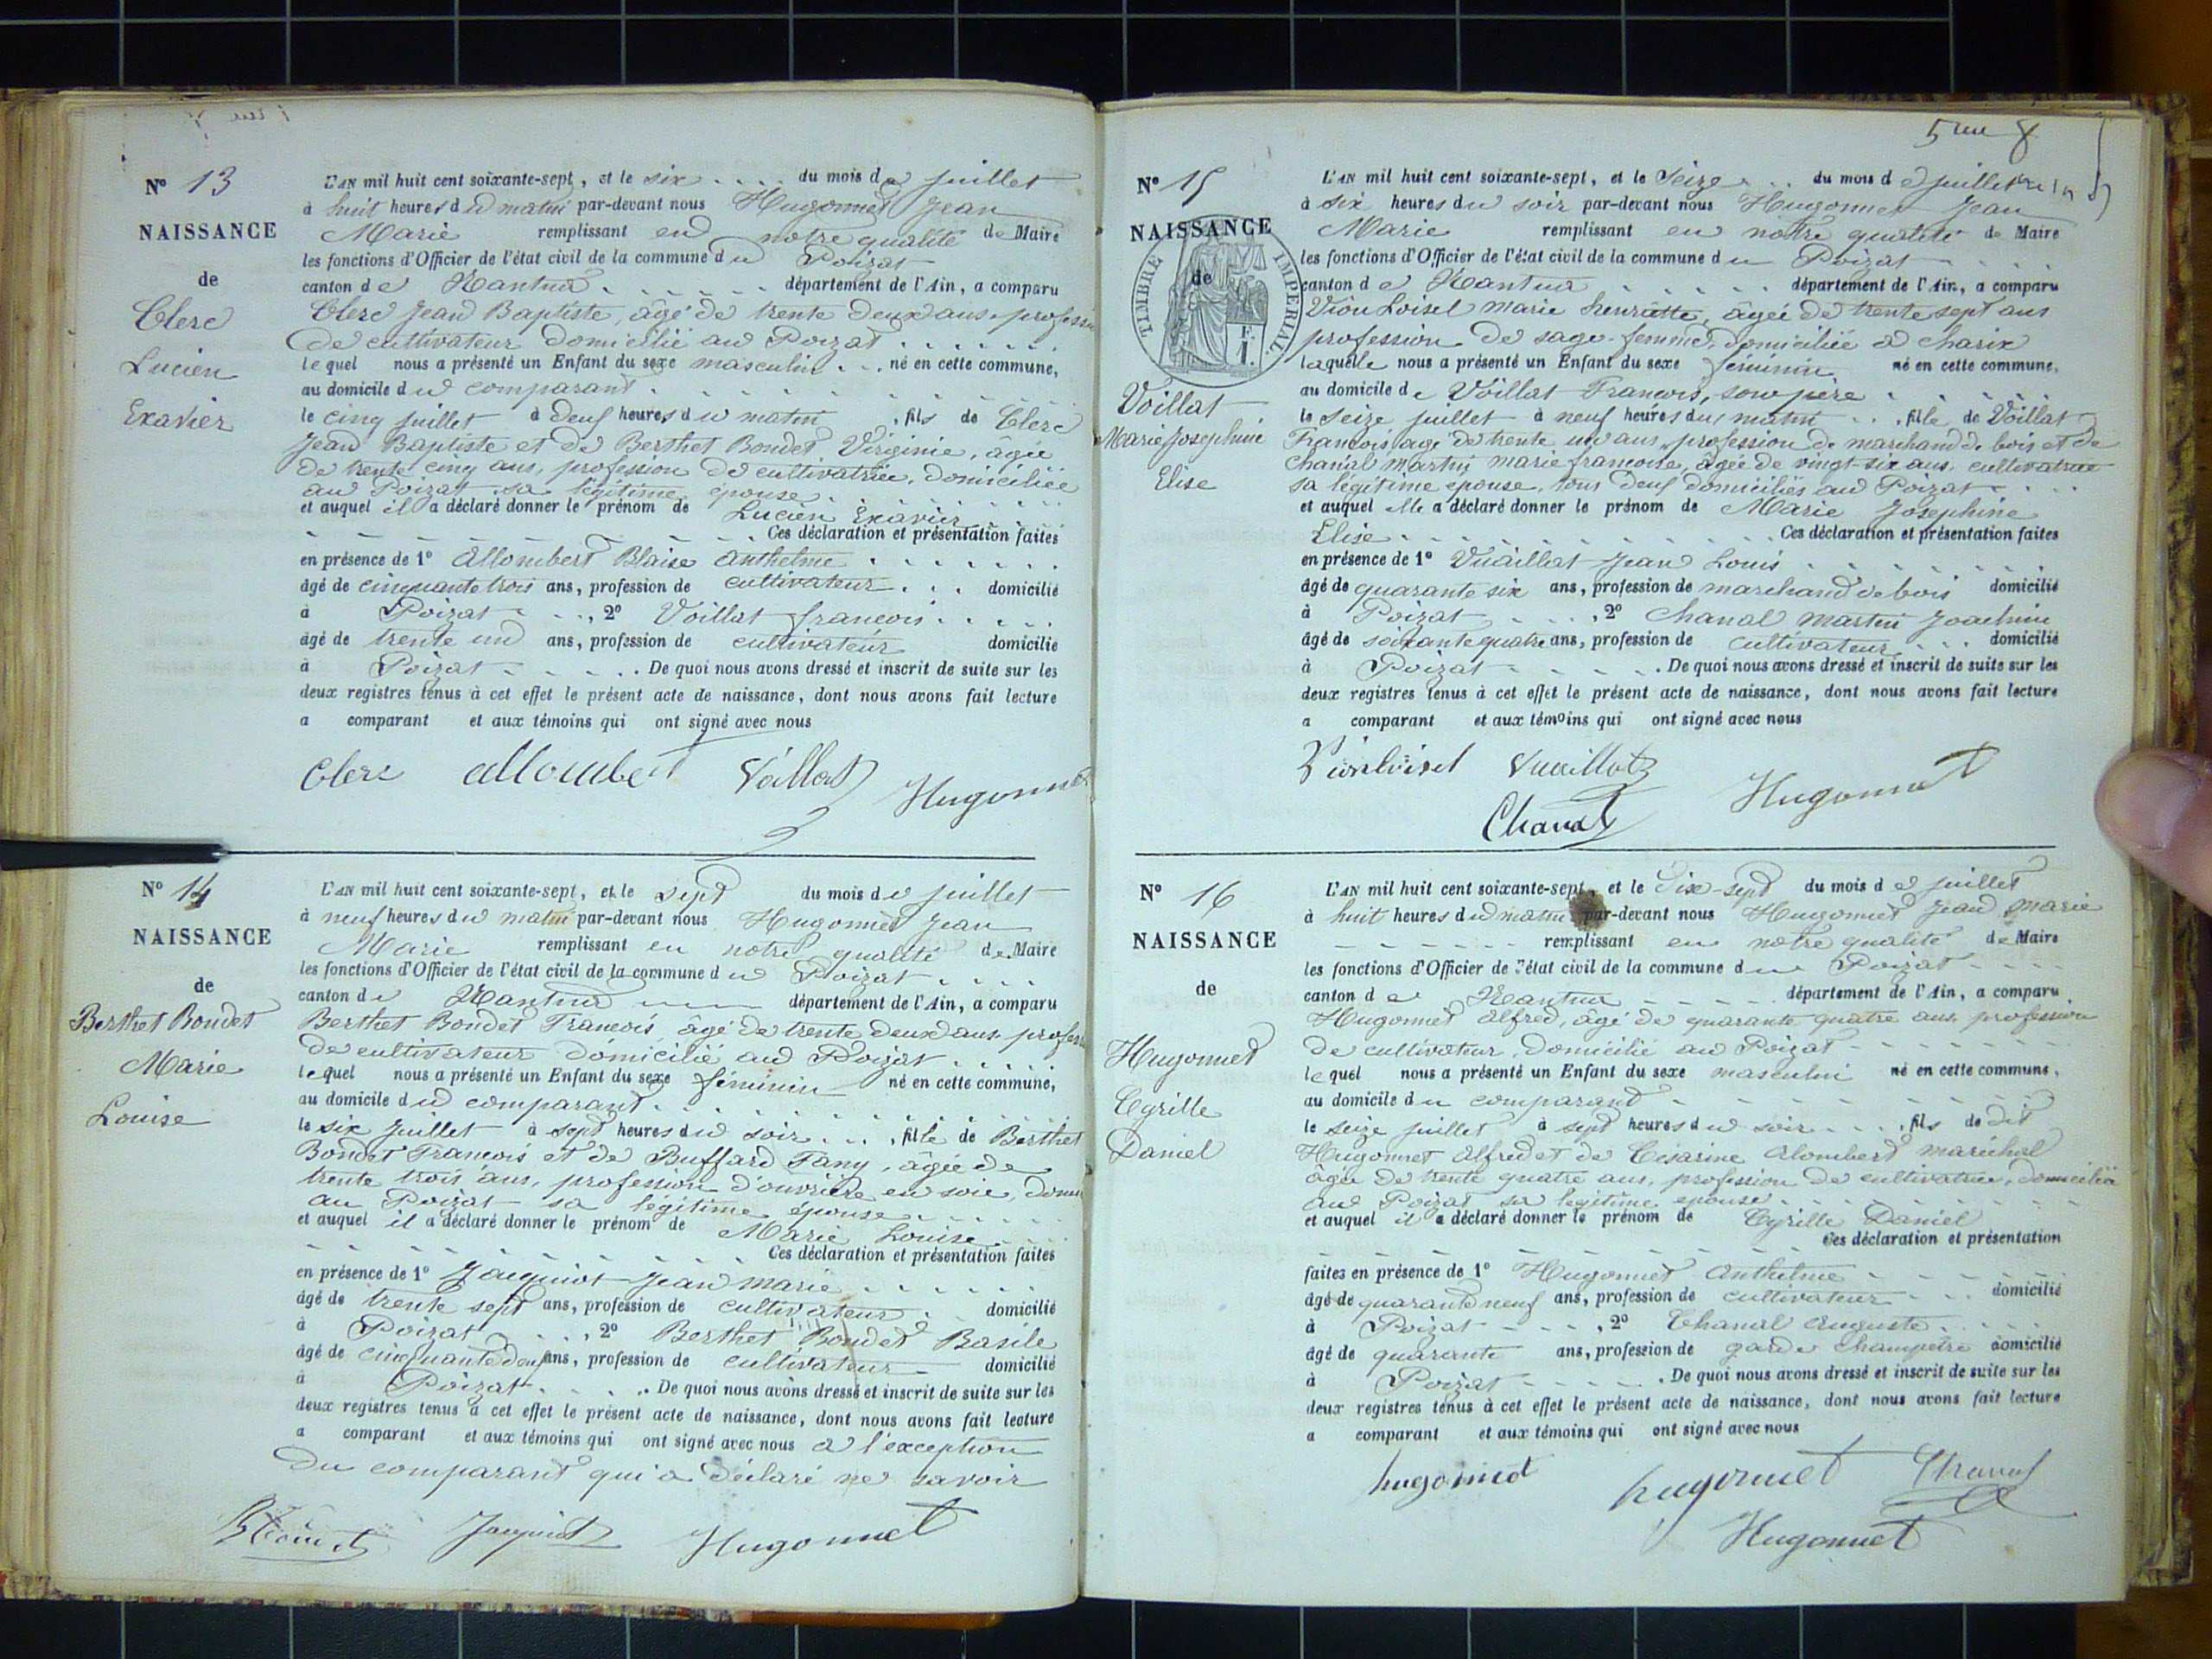 Nº 13
NAISSANCE
de
Clerc
Lucien
Exavier
L'AN mil huit cent soixante-sept, et le six . . . . du mois de juillet
à huit heures du matin par-devant nous Hugonnet Jean
Marie remplissant en notre qualité de Maire
les fonctions d'Officier de l'état civil de la commune du Poizat
canton de Nantua . . . . . département de l'Ain, a comparu
Clerc Jean Baptiste, âgé de trente deux ans, profession
de cultivateur domicilié au Poizat . . . . . .
lequel nous a présenté un Enfant du sexe masculin . . . né en cette commune,
au domicile du comparant . . . . . .
le cinq juillet à deux heures du matin , fils de Clerc
Jean Baptiste et de Berthet Bondet Virginie, âgée
de trente cinq ans, profession de cultivatrice, domiciliée
au Poizat sa légitime épouse . . . . .
et auquel il a déclaré donner le prénom de Lucien Exavier
Ces déclaration et présentation faites
en présence de 1º Allombert Blaise Anthelme . . . . . .
âgé de cinquante trois ans, profession de cultivateur . . . domicilié
à Poizat . . , 2º Voillat françois . . . . .
âgé de trente un ans, profession de cultivateur domicilié
à Poizat . . . . De quoi nous avons dressé et inscrit de suite sur les
deux registres tenus à cet effet le présent acte de naissance, dont nous avons fait lecture
a comparant et aux témoins qui ont signé avec nous
Clerc allombert Voillat Hugonnet
Nº 14
NAISSANCE
de
Berthet Bondet
Marie
Louise
L'AN mil huit cent soixante-sept, et le sept du mois de juillet
à neuf heures du matin par-devant nous Hugonnet Jean
Marie remplissant en notre qualité de Maire
les fonctions d'Officier de l'état civil de la commune du Poizat . . . .
canton de Nantua département de l'Ain, a comparu
Berthet Bondet François, âgé de trente deux ans, profession
de cultivateur domicilié au Poizat . . . . .
lequel nous a présenté un Enfant du sexe féminin né en cette commune,
au domicile du comparant . . . . . .
le six juillet à sept heures du soir . . . , fille de Berthet
Bondet François et de Buffard Fany, âgée de
trente trois ans, profession d'ouvrière en soie, domi
au Poizat sa légitime épouse . . . . .
et auquel il a déclaré donner le prénom de Marie Louise . . .
Ces déclaration et présentation faites
en présence de 1º Jacquiot Jean Marie . . . . . .
âgé de trente sept ans, profession de cultivateur . domicilié
à Poizat . . . , 2º Berthet Bondet Basile
âgé de cinquante deux ans, profession de cultivateur domicilié
à Poizat . . . . De quoi nous avons dressé et inscrit de suite sur les
deux registres tenus à cet effet le présent acte de naissance, dont nous avons fait lecture
a comparant et aux témoins qui ont signé avec nous à l'exception
du comparant qui a déclaré ne savoir
Hugonnet
5
8
Nº 15
NAISSANCE
de
TIMBRE IMPERIAL
Voillat
Marie Josephine
Elise
L'AN mil huit cent soixante-sept, et le Seize . . du mois de juillet
à six heures du soir par-devant nous Hugonnet Jean
Marie remplissant en notre qualité de Maire
les fonctions d'Officier de l'état civil de la commune du Poizat . . . .
canton de Nantua . . . . . . département de l'Ain, a comparu
Vion Loisel Marie henriette, âgée de trente sept ans
profession de sage-femme, domiciliée à Charix
laquelle nous a présenté un Enfant du sexe féminin né en cette commune,
au domicile de Voillat François, son père . . . .
le Seize juillet à neuf heures du matin . . . fille de Voillat
François, âgé de trente un ans, profession de marchand de bois et de
Chanal Martin Marie françoise, âgée de vingt-six ans, cultivatrice
sa légitime épouse, tous deux domiciliés au Poizat . . . .
et auquel elle a déclaré donner le prénom de Marie Josephine
Elise . . . . . . . Ces déclaration et présentation faites
en présence de 1º Vuaillat Jean Louis . . . . .
âgé de quarante six ans, profession de marchand de bois domicilié
à Poizat . . . , 2º Chanal Martin Joachim
âgé de soixante quatre ans, profession de cultivateur . . . domicilié
à Poizat . . . . De quoi nous avons dressé et inscrit de suite sur les
deux registres tenus à cet effet le présent acte de naissance, dont nous avons fait lecture
a comparant et aux témoins qui ont signé avec nous
Vionloisel Vuaillat Hugonnet
Chanal
Nº 16
NAISSANCE
de
Hugonnet
Cyrille
Daniel
L'AN mil huit cent soixante-sept, et le Dix-sept du mois de juillet
à huit heures du matin par-devant nous Hugonnet Jean Marie
remplissant en notre qualité de Maire
les fonctions d'Officier de l'état civil de la commune du Poizat . . . .
canton de Nantua . . . . . département de l'Ain, a comparu
Hugonnet Alfred, âgé de quarante quatre ans, profession
de cultivateur, domicilié au Poizat . . . . . .
lequel nous a présenté un Enfant du sexe masculin né en cette commune,
au domicile du comparant . . . . . .
le seize juillet à sept heures du soir . . . . fils de dit
Hugonnet Alfred et de Césarine Alombert maréchal
âgée de trente quatre ans, profession de cultivatrice, domiciliée
au Poizat sa légitime épouse . . . . . .
et auquel il a déclaré donner le prénom de Cyrille Daniel
Ces déclaration et présentation
faites en présence de 1º Hugonnet Anthelme . . . . .
âgé de quarante neuf ans, profession de cultivateur . . . domicilié
à Poizat . . . . , 2º Chanal Auguste . . . .
âgé de quarante ans, profession de garde Champêtre domicilié
à Poizat . . . . . De quoi nous avons dressé et inscrit de suite sur les
deux registres tenus à cet effet le présent acte de naissance, dont nous avons fait lecture
a comparant et aux témoins qui ont signé avec nous
hugonnet hugonnet Chanal
Hugonnet